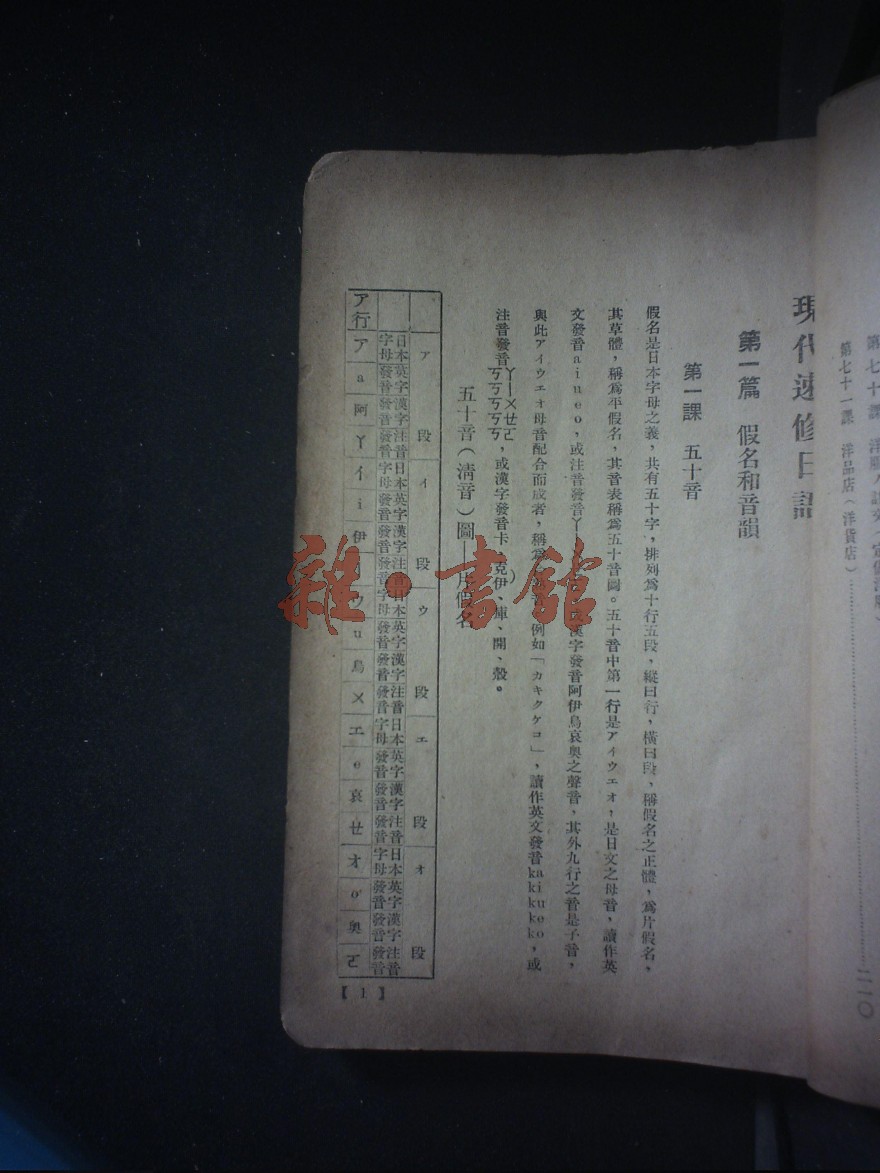 現代速修日語
第一篇　假名和音韻
第一課　五十音
假名是日本字母之義，共有五十字，排列爲十行五段，縱曰行，橫曰段，稱假名之正體，爲片假名，
其草體，稱爲平假名，其音表稱爲五十音圖。五十音中第一行是アイウエオ，是日文之母音，讀作英
文發音aiueo，或注音發音ㄚ漢字發音阿伊烏哀奧之聲音，其外九行之音是子音，
與此アイウエオ母音配合而成者，稱爲例如「カキクケコ」，讀作英文發音kakikukeko，或
注音發音ㄎㄚㄎㄧㄎㄨㄎㄝㄎㄛ，或漢字發音卡、克伊、庫、開、殼。
五十音（清音）圖——片假名
ア段　イ段　ウ段　エ段　オ段
日本字母　英字發音　漢字發音　注音發音　日本字母　英字發音　漢字發音　注音發音　日本字母　英字發音　漢字發音　注音發音　日本字母　英字發音　漢字發音　注音發音　日本字母　英字發音　漢字發音　注音發音
ア行　ア　a　阿　ㄚ　イ　i　伊　ウ　u　烏　ㄨ　エ　e　哀　ㄝ　オ　o　奧　ㄛ
【1】
第七十一課　洋品店（洋貨店）
二一〇
雜·書館